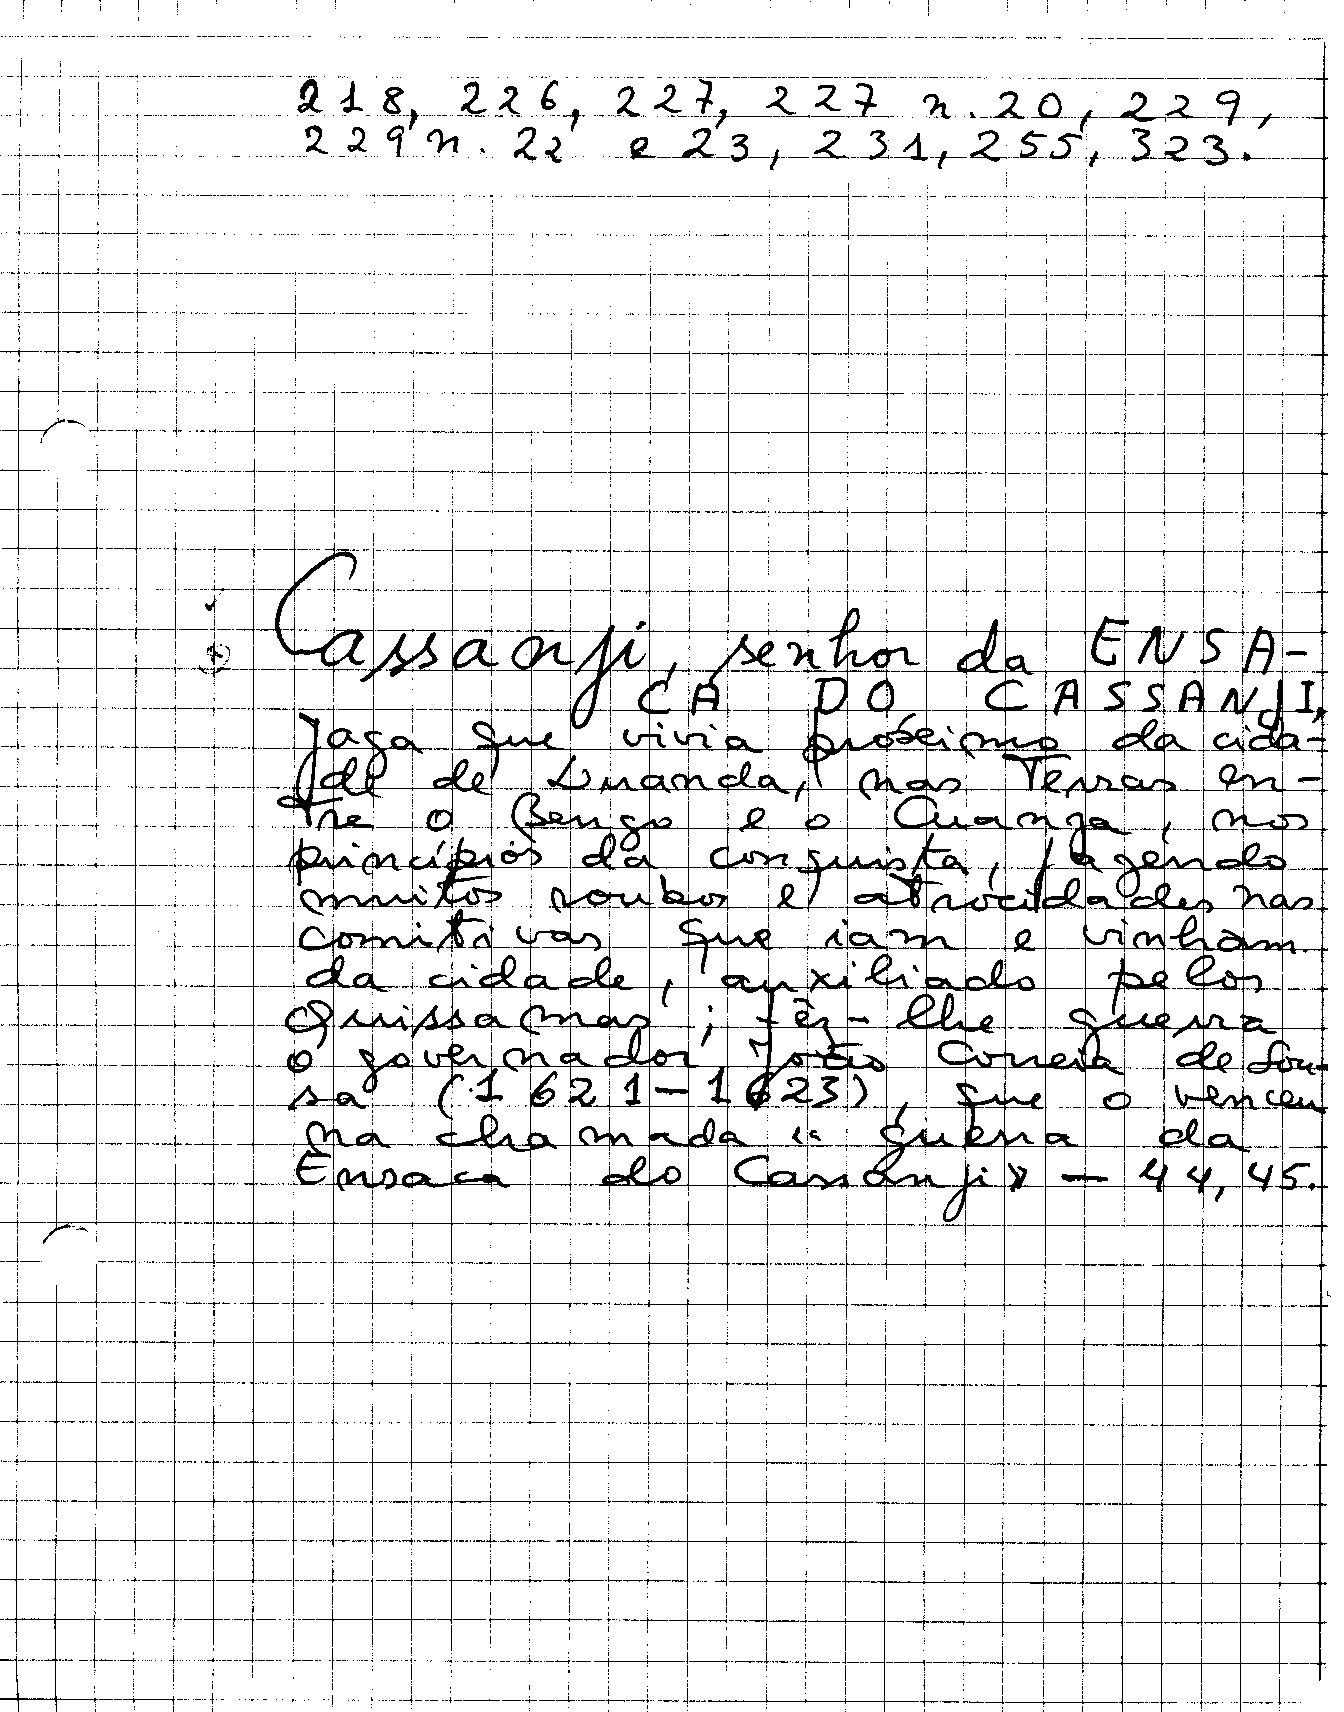 218, 226, 227, 227 n. 20, 229,
229 n. 22 e 23, 231, 255, 323.
Cassanji, senhor da ENSA-
CA DO CASSANJI,
Jaga que vivia próximo da cida-
de de Luanda, nas Terras en-
tre o Bengo e o Cuanza, nos
princípios da conquista, fazendo
muitos roubos e atrocidades nas
comitivas que iam e vinham
da cidade, auxiliado pelos
Quissamas; fêz-lhe guerra
o governador João Correia de Sou-
sa (1621-1623), que o venceu
na chamada «guerra da
Ensaca do Cassanji» — 44, 45.